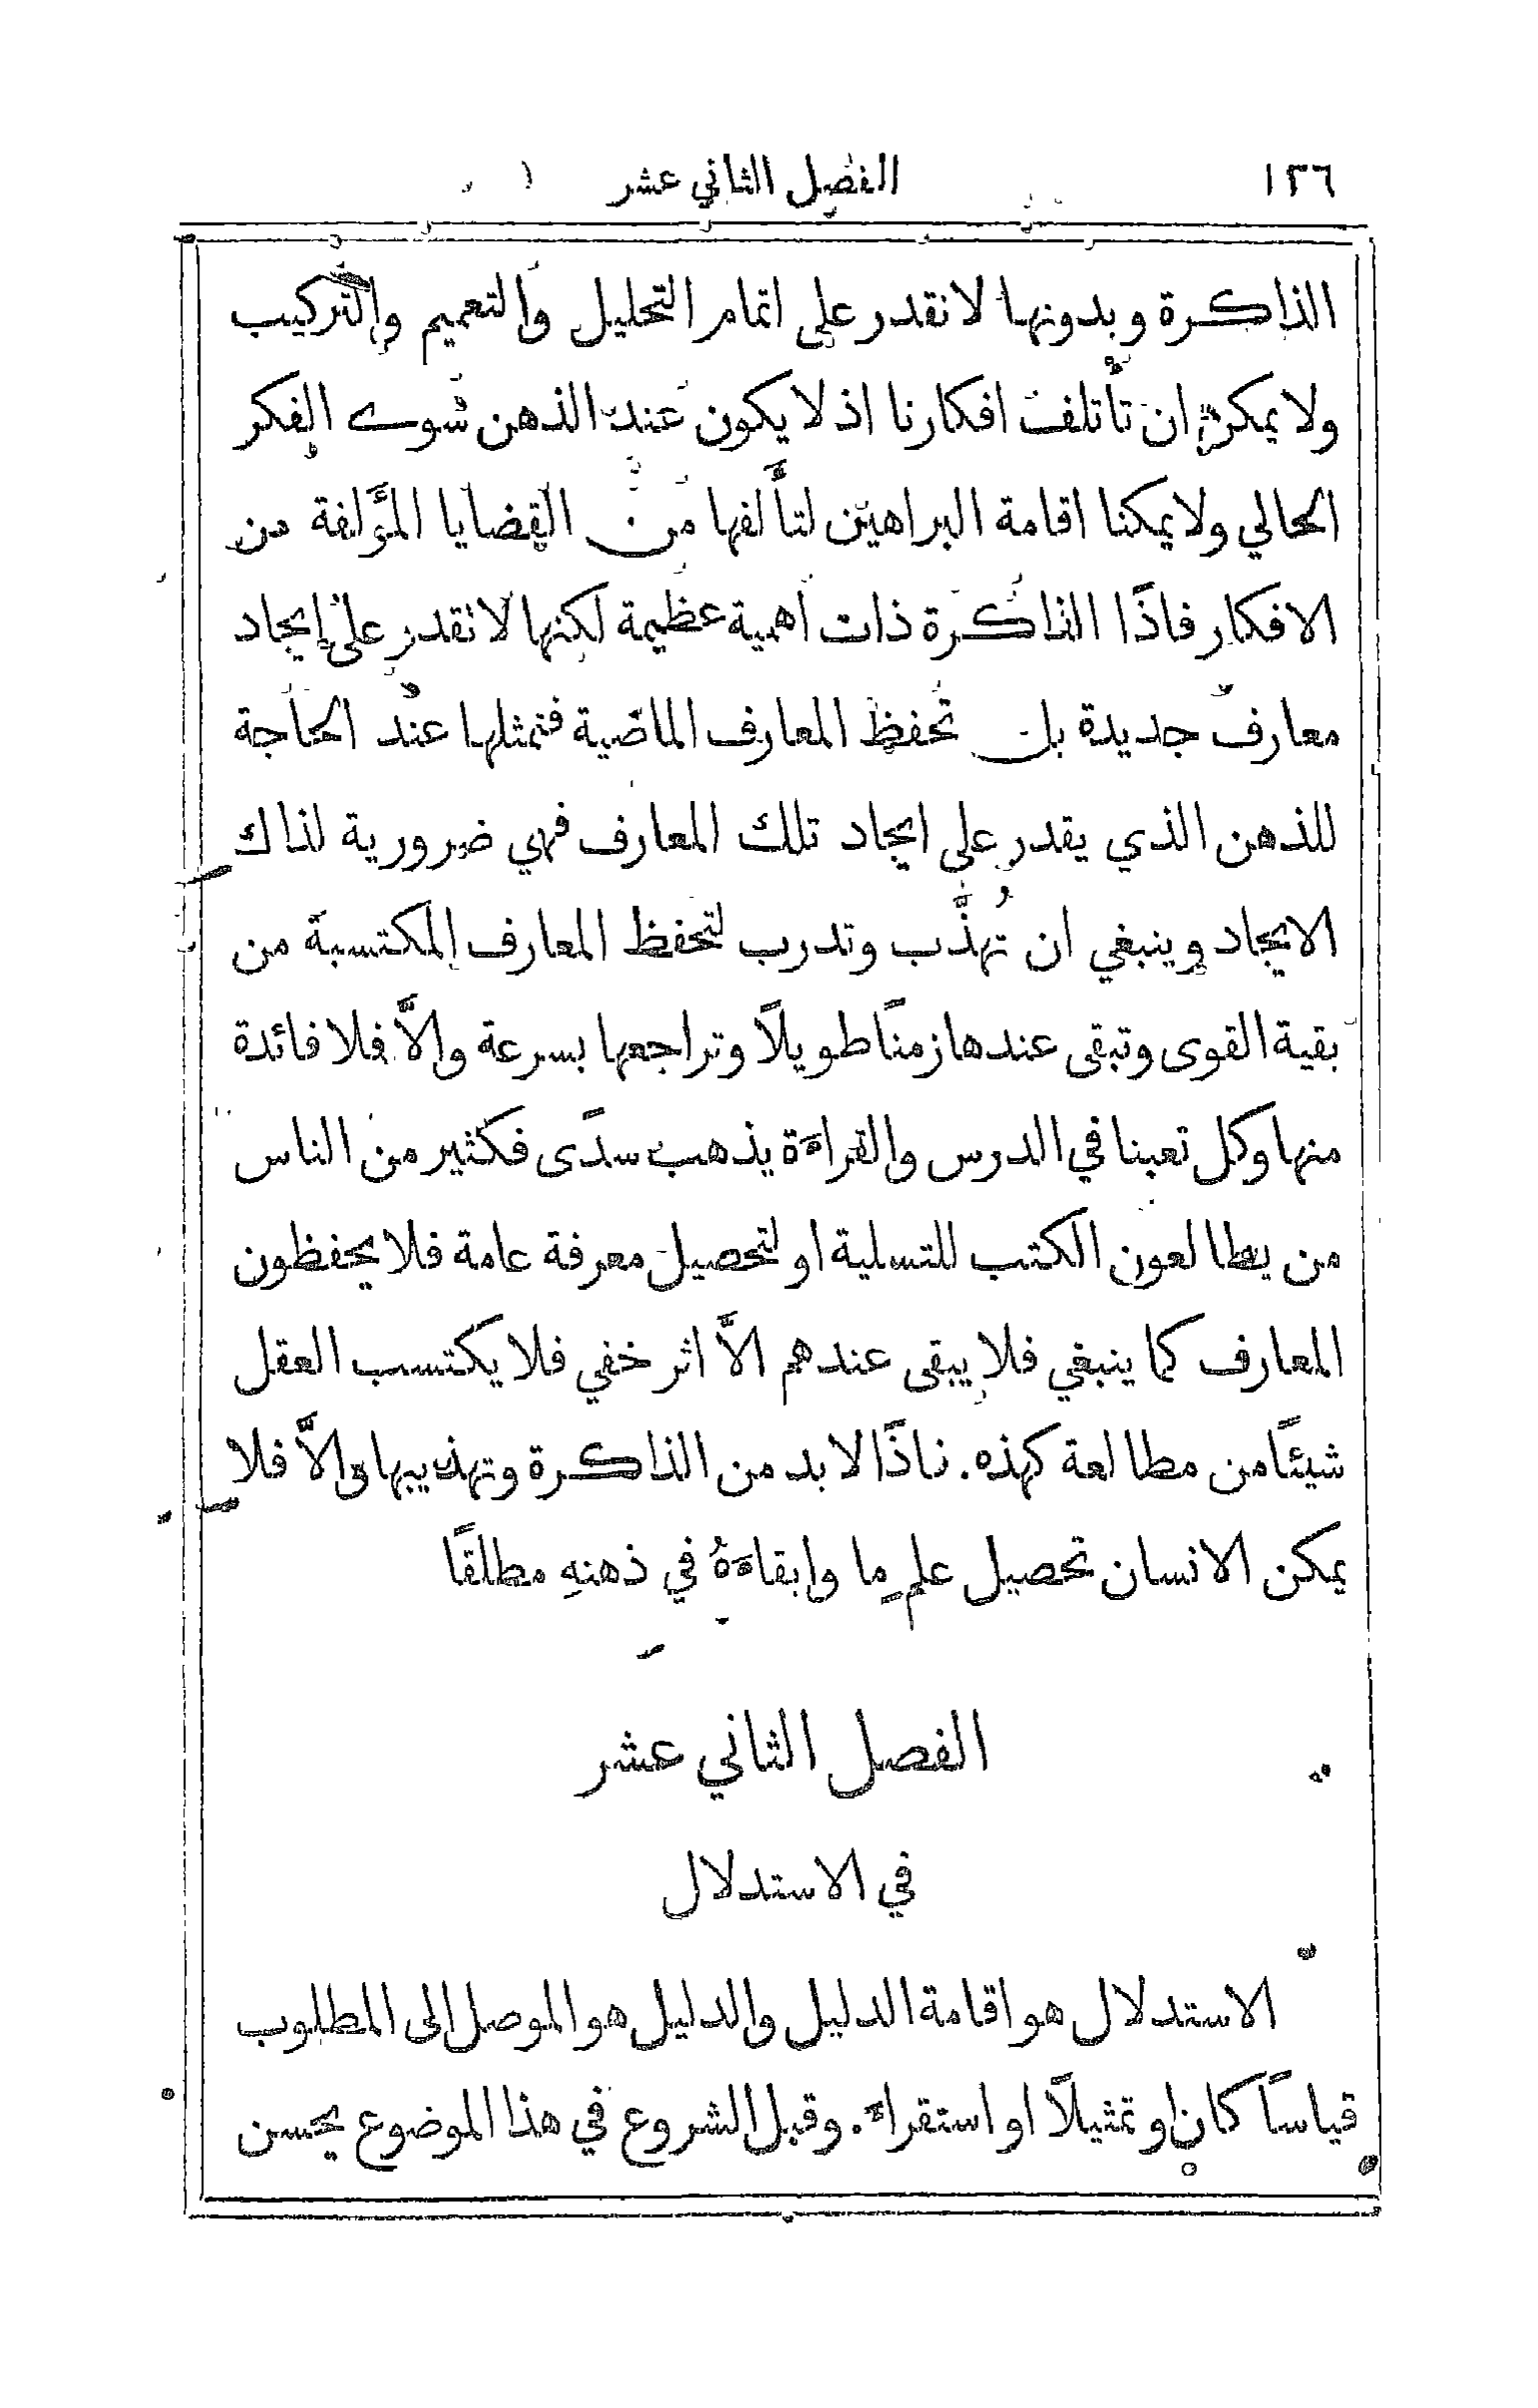 ١٢٦ الفصل الثاني عشر
الذاكرة وبدونها لا نقدر على اتمام التحليل والتعميم والتركيب
ولا يمكن ان تأتلف افكارنا اذ لا يكون عند الذهن سوى الفكر
الحالي ولا يمكنا اقامة البراهين لتألفها من القضايا المؤَلفة من
الافكار فاذًا الذاكرة ذات اهمية عظيمة لكنها لا تقدر على ايجاد
معارف جديدة بل تحفظ المعارف الماضية فتمثلها عند الحاجة
للذهن الذي يقدر على ايجاد تلك المعارف فهي ضرورية لذاك
الايجاد وينبغي ان تُهذَّب وتدرب لتحفظ المعارف المكتسبة من
بقية القوى وتبقى عندها زمنًا طويلًا وتراجعها بسرعة والَّا فلا فائدة
منها وكل تعبنا في الدرس والقراءة يذهب سدًى فكثير من الناس
من يطالعون الكتب للتسلية او لتحصيل معرفة عامة فلا يحفظون
المعارف كما ينبغي فلا يبقى عندهم الَّا اثر خفي فلا يكتسب العقل
شيئًا من مطالعة كهذه. فاذًا لا بد من الذاكرة وتهذيبها والَّا فلا
يمكن الانسان تحصيل علمٍ ما وابقاءهُ في ذهنهِ مطلقًا
الفصل الثاني عشر
في الاستدلال
الاستدلال هو اقامة الدليل والدليل هو الموصل الى المطلوب
قياسًا كان او تمثيلًا او استقراء. وقبل الشروع في هذا الموضوع يحسن